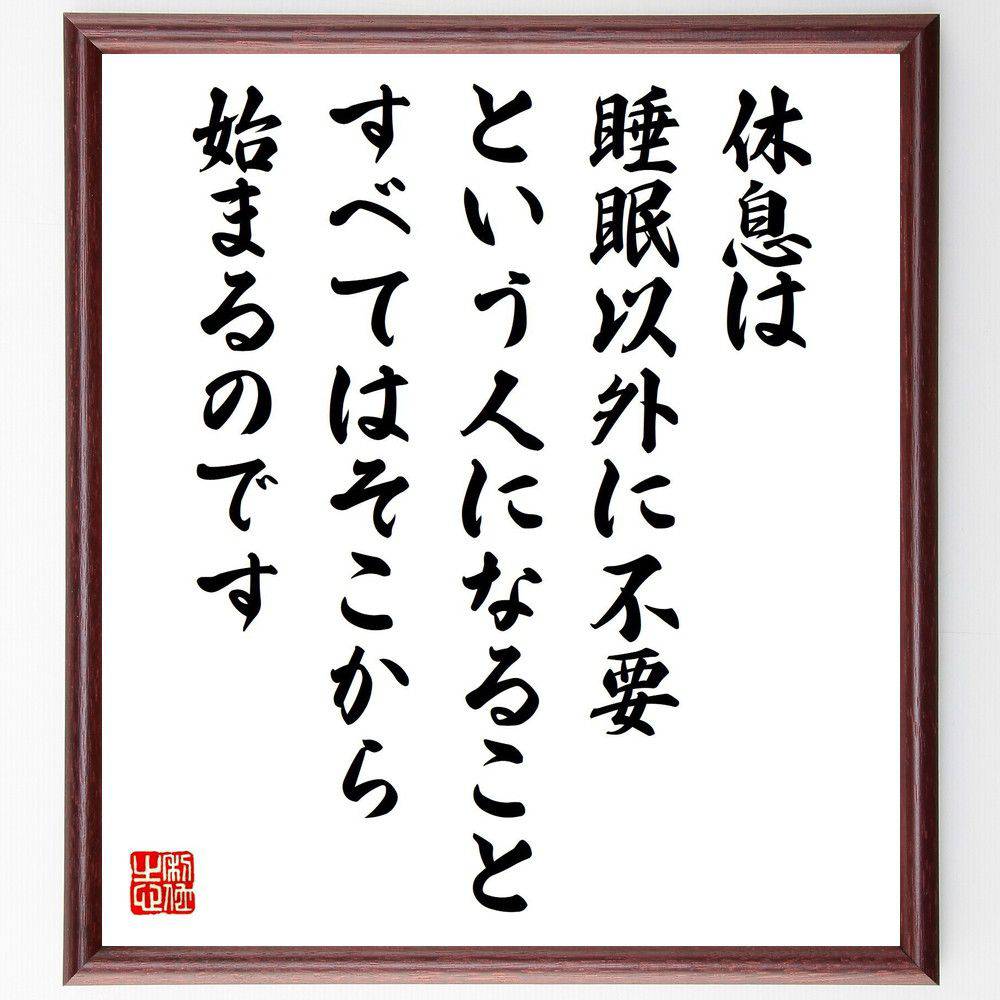 休息は
睡眠以外に不要
という人になること
すべてはそこから
始まるのです